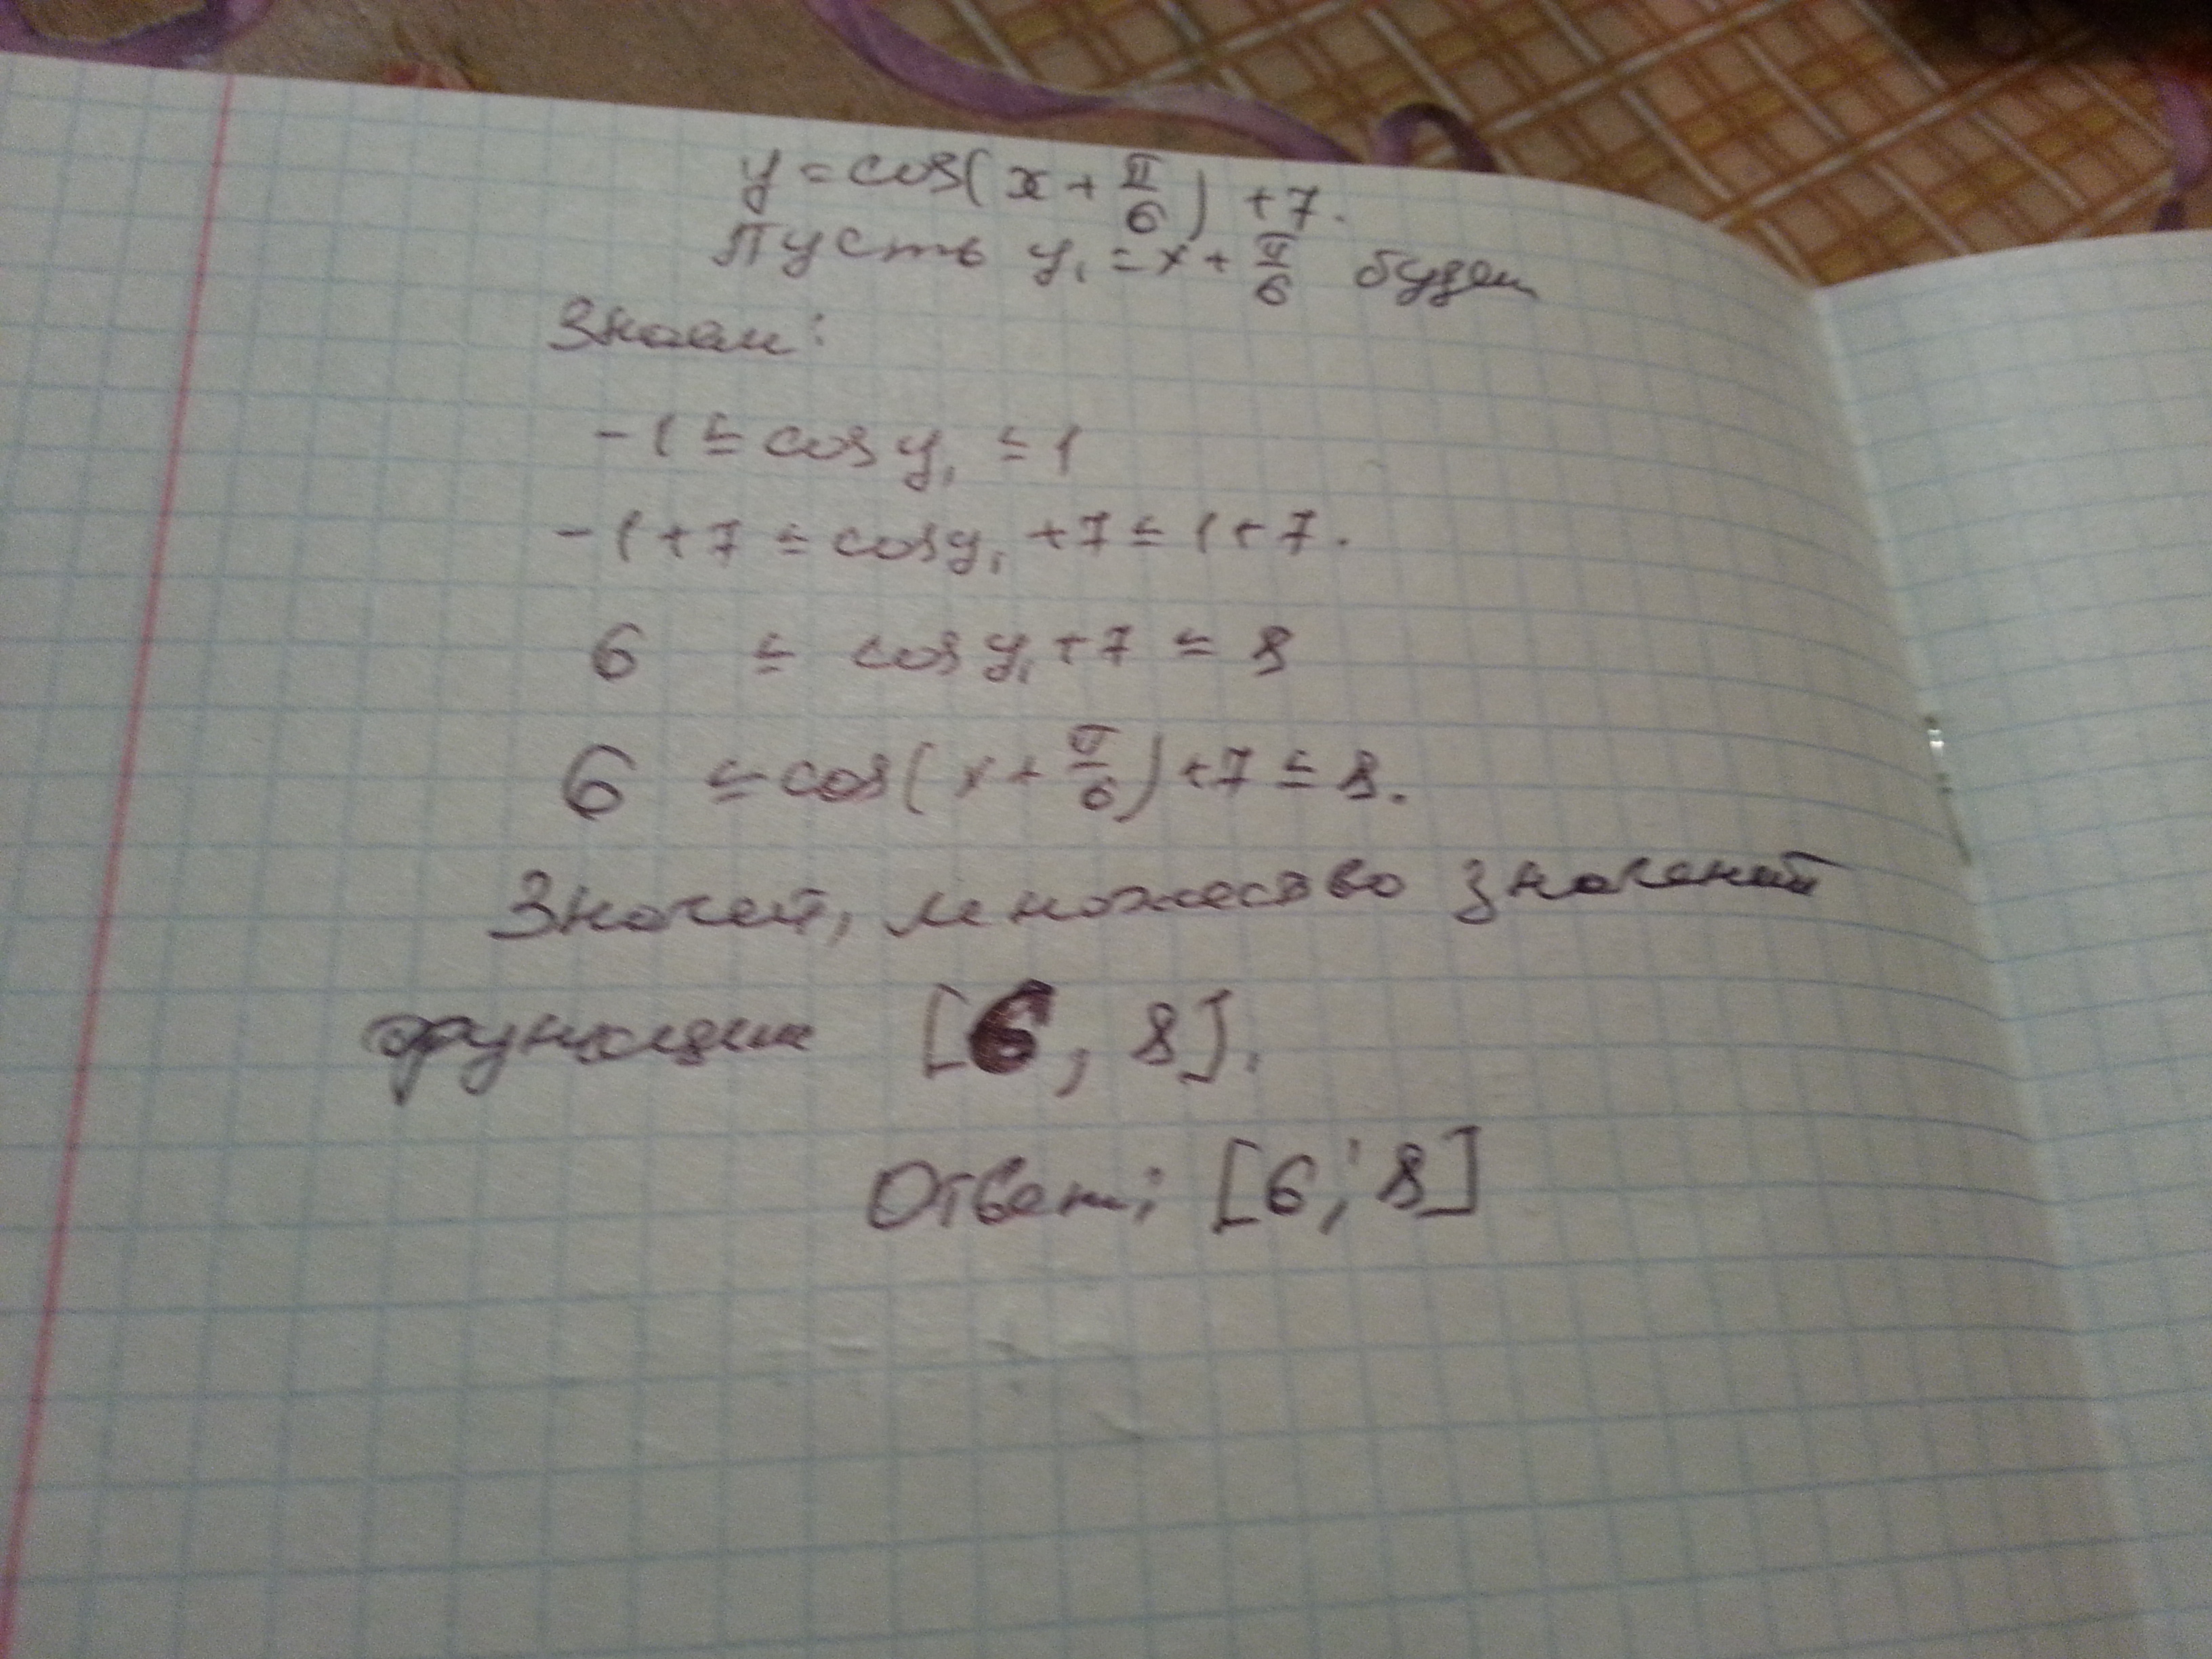 y = cos(x + π/6) + 7.
Пусть y₁ = x + π/6 будем
Знаем:
-1 ≤ cos y₁ ≤ 1
-1 + 7 ≤ cos y₁ + 7 ≤ 1 + 7.
6 ≤ cos y₁ + 7 ≤ 8
6 ≤ cos(x + π/6) + 7 ≤ 8.
Значит, множество значений
функции [6, 8].
Ответ: [6; 8]